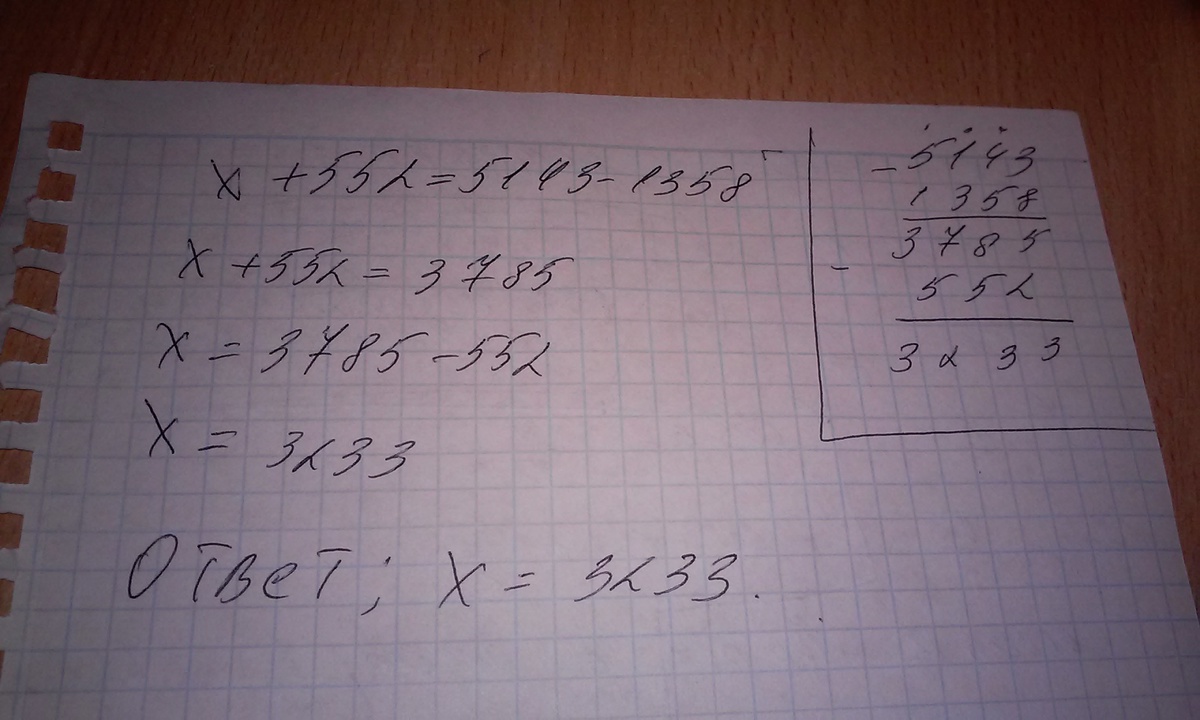 x + 552 = 5143 - 1358
x + 552 = 3785
x = 3785 - 552
x = 3233
Ответ; x = 3233.
- 5143
1358
3785
- 552
3233